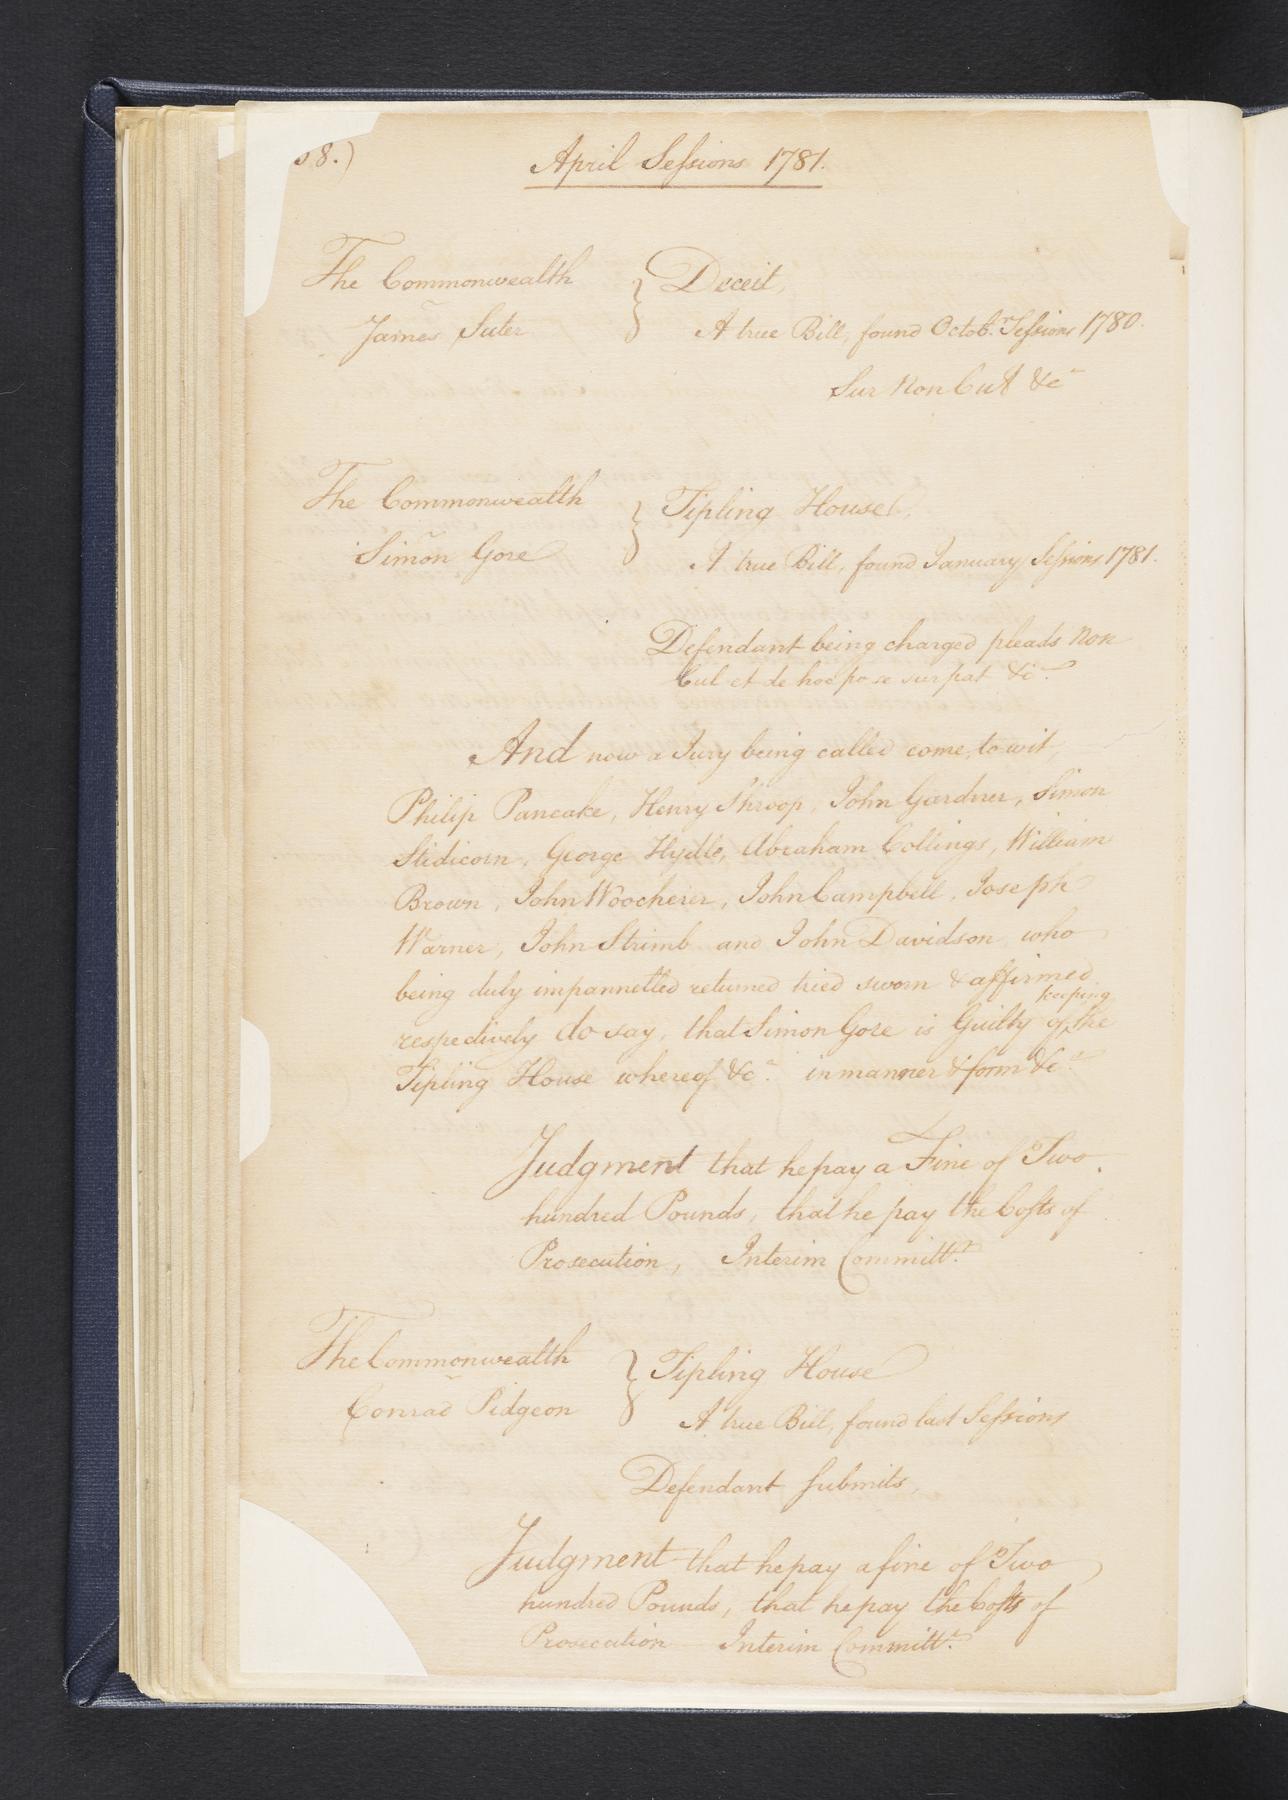 58.)
April Sessions 1781.
The Commonwealth } Deceit,
James Suter
A true Bill, found Octob.r Sessions 1780.
Sur Non Cul &ca
The Commonwealth } Tipling House.
Simon Gore
A true Bill, found January Sessions 1781.
Defendant being charged pleads Non
Cul et de hoc po se sur pat &ca
And now a Jury being called come, to wit,
Philip Pancake, Henry Shroop, John Gardner, Simon
Stidicorn, George Hydle, Abraham Collings, William
Brown, John Woocherer, John Campbell, Joseph
Warner, John Strimb and John Davidson who
being duly impannelled returned tried sworn & affirmed
respectively do say, that Simon Gore is Guilty of keeping the
Tipling House whereof &ca. in manner & form &ca
Judgment that he pay a Fine of Two
hundred Pounds, that he pay the Costs of
Prosecution, Interim Committr.
The Commonwealth } Tipling House
Conrad Pidgeon
A true Bill, found last Sessions
Defendant Submits,
Judgment that he pay a fine of Two
hundred Pounds, that he pay the Costs of
Prosecution Interim Committr.